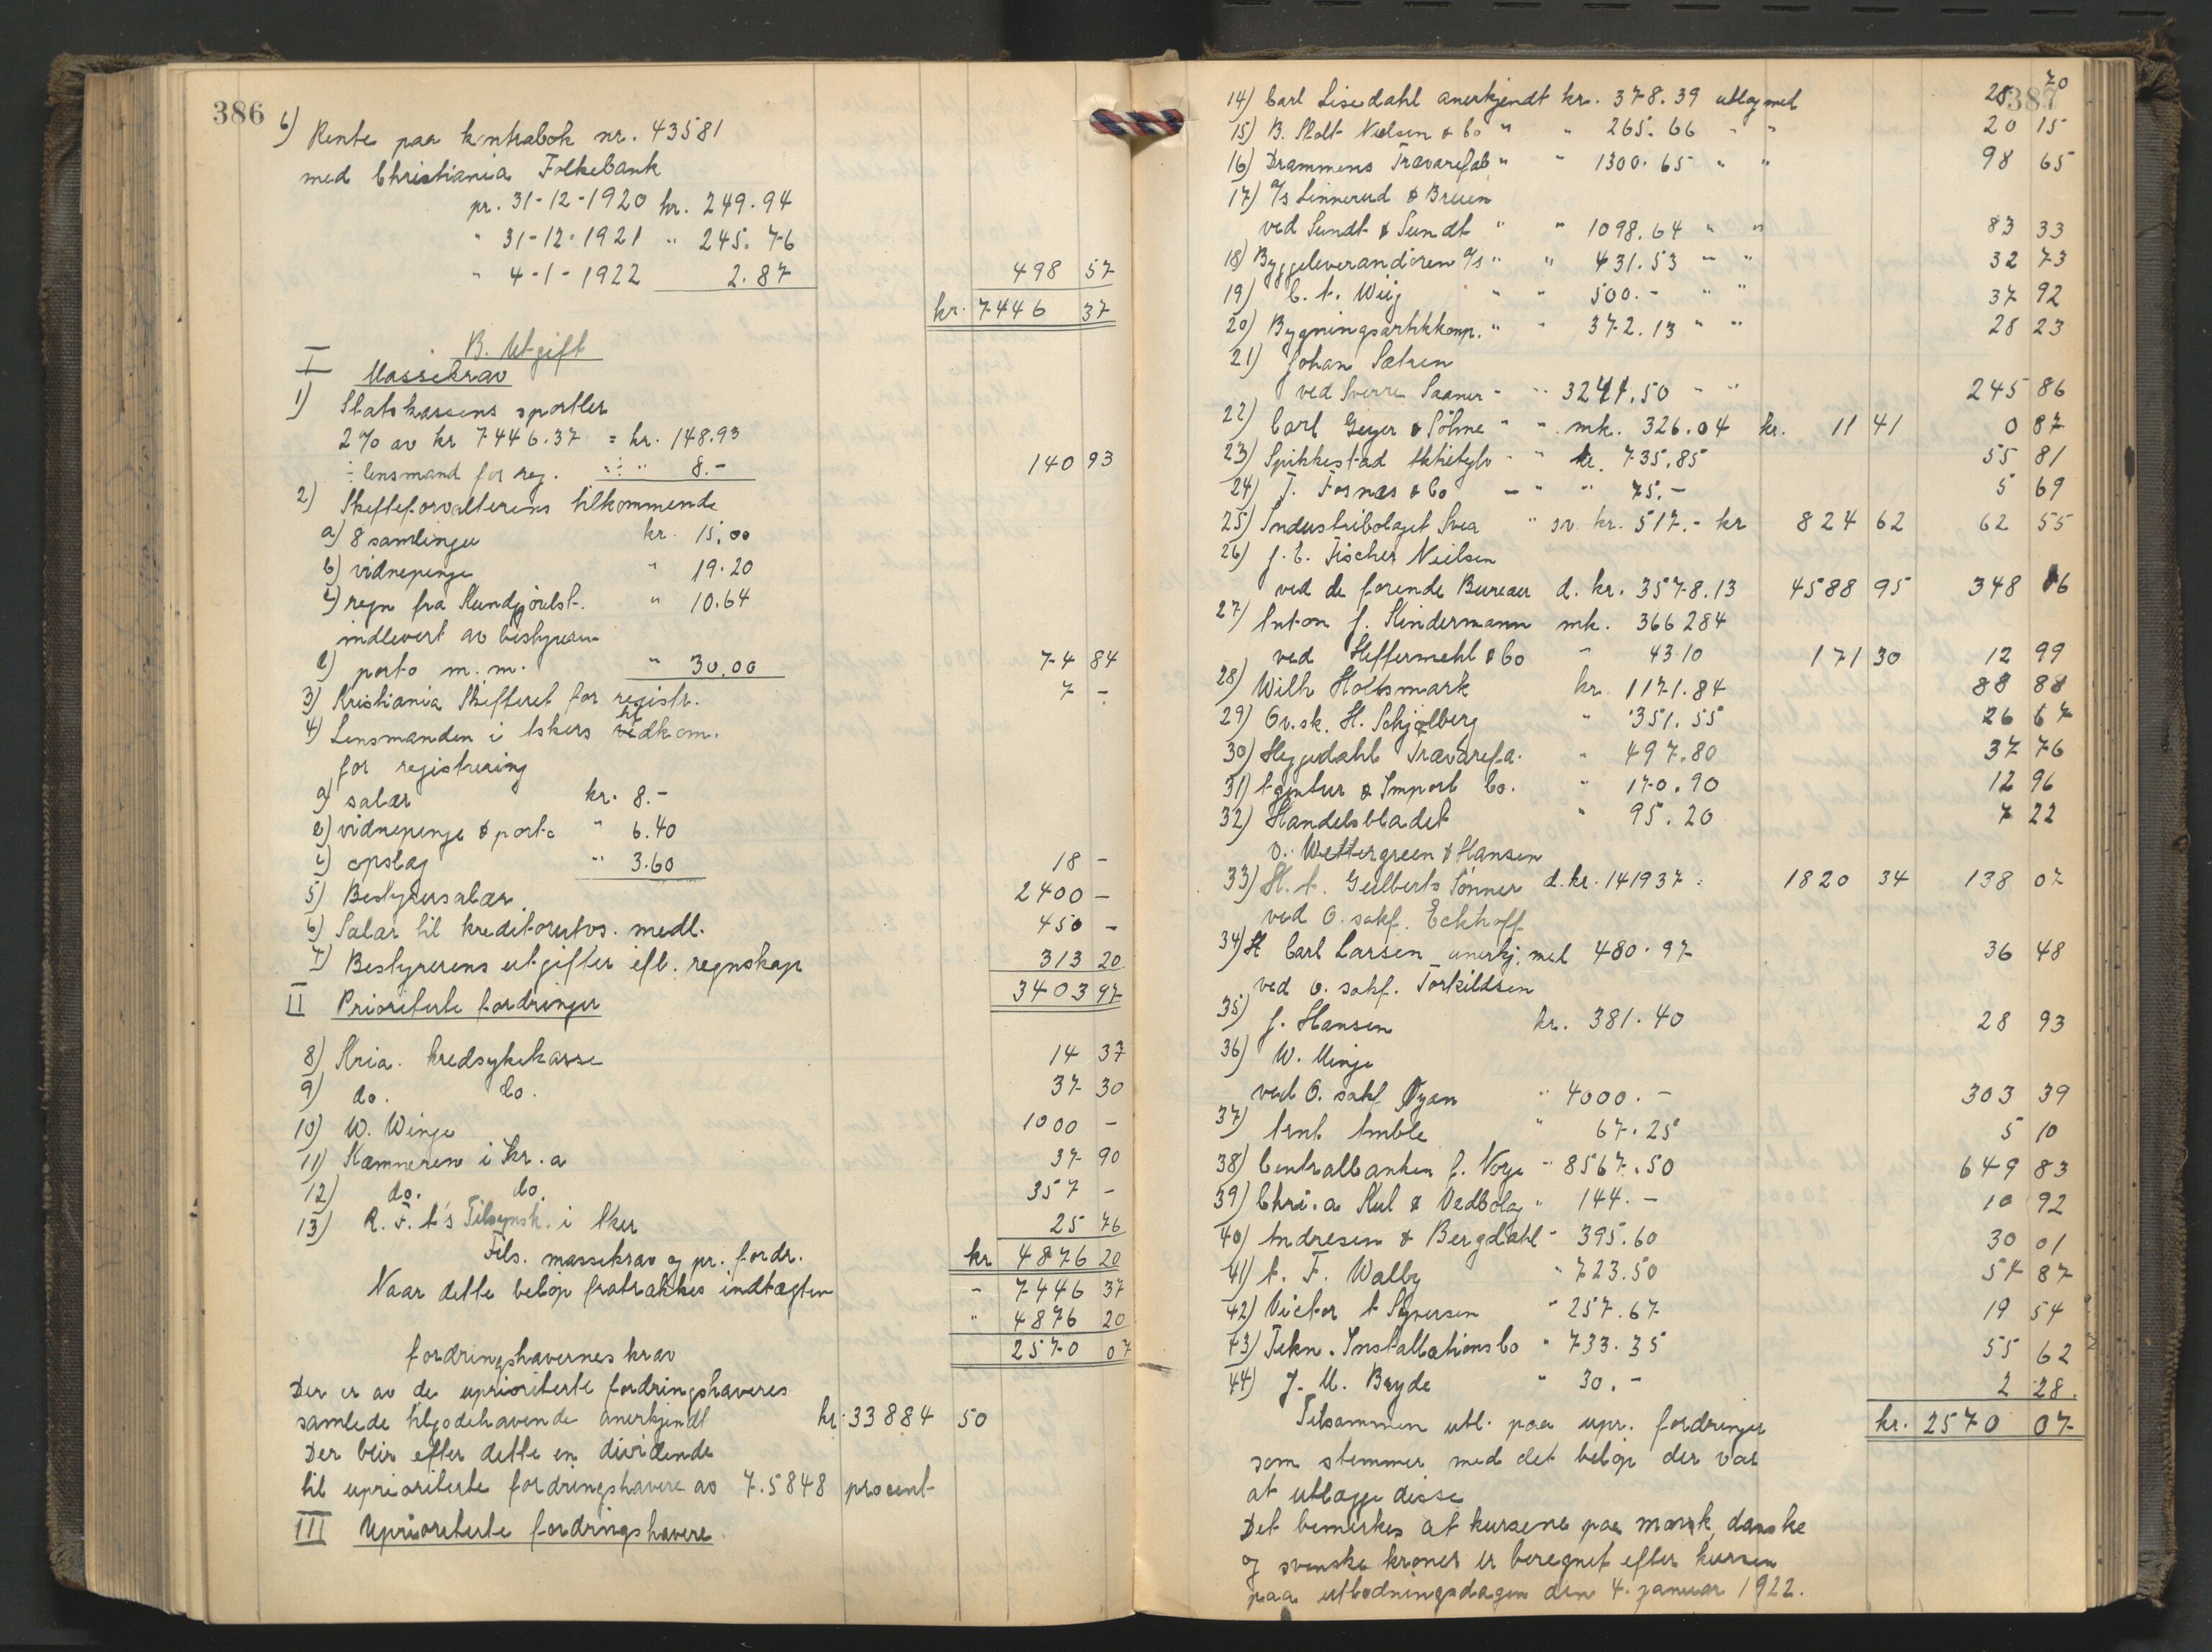 386
6) Rente paa kontrabok nr. 43581
med Christiania Folkebank
pr. 31-12-1920 kr. 249.94
" 31-12-1921 " 245.76
" 4-1-1922 2.87 498 57
kr. 7446 37
B. Utgift
I Massekrav
1) Statskassens sportler
2% av kr 7446.37 = kr. 148.93
÷ lensmand for reg. " 8.- 140 93
2) Skifteforvalterens tilkommende
a) 8 samlinger kr. 15.00
b) vidnepenge " 19.20
c) regn fra Kundgjørelst. " 10.64
indlevert av bestyreren
d) porto m.m. " 30.00 74 84
3) Kristiania Skifteret for registr. 7 -
4) Lensmanden i Askers vedkom.
for registrering
a) salær kr. 8.-
b) vidnepenge & porto " 6.40
c) opslag " 3.60 18 -
5) Bestyrersalær 2400 -
6) Salær til kreditorutvs. medl. 450 -
7) Bestyrerens utgifter efl. regnskap 313 20
3403 97
II Prioriterte fordringer
8) Kria. kredsykekasse 14 37
9) do. do. 37 30
10) W. Winge 1000 -
11) Kæmneren i Kr.a 37 90
12) do. do. 357 -
13) R.F.A's Tilsynsk. i Aker 25 76
Tils. massekrav og pr. fordr. kr 4876 20
Naar dette beløp fratrækkes indtægten - 7446 37
" 4876 20
fordringshavernes krav 2570 07
Der er av de uprioriterte fordringshaveres
samlede tilgodehavende anerkjendt kr. 33884 50
Der blir efter dette en dividende
til uprioriterte fordringshavere av 7.5848 procent
III Uprioriterte fordringshavere
387
14) Carl Lisedahl anerkjendt kr. 378.39 utlag med 28 70
15) B. Stolt Nielsen & Co " " 265.66 " " 20 15
16) Drammens Trævarefab " " 1300.65 " " 98 65
17) A/s Linnerud & Breien
ved Sundt & Sundt " " 1098.64 " " 83 33
18) Byggeleverandøren A/s " " 431.53 " " 32 73
19) C.A. Wiig " " 500.- " " 37 92
20) Bygningsartikkomp. " " 372.13 " " 28 23
21) Johan Sætren
ved Sverre Saaner - " 3241.50 - " 245 86
22) Carl Geyer & Söhne " " mk. 326.04 kr. 11 41 0 87
23) Spikkestad Aktietglv - " kr. 735.85 55 81
24) T. Fornæs & Co - " " 75.- 5 69
25) Industribolaget Svea " sv. kr. 517.- kr 824 62 62 55
26) J.C. Fischer Nielsen
ved de forende Bureauer d. kr. 3578.13 4588 95 348 06
27) Anton J. Kindermann mk. 366284
ved Heffermehl & Co - 43.10 171 30 12 99
28) Wilh Holtsmark kr. 1171.84 88 88
29) Ov.sk. H. Schjølberg " 351.55 26 67
30) Heggedahls Trævarefa. " 497.80 37 76
31) Agentur & Import Co. " 170.90 12 96
32) Handelsbladet " 95.20 7 22
v. Wettergreen & Hansen
33) H.A. Gulberts Sønner d. kr. 141937 : 1820 34 138 07
ved O. sakf. Eckhoff
34) H Carl Larsen anerkj. med 480.97 36 48
ved o. sakf. Torkildsen
35) J. Hansen kr. 381.40 28 93
36) W. Winge
ved O. sakf Øyan " 4000.- 303 39
37) Arnt Amble " 67.25 5 10
38) Centralbanken f. Norge " 8567.50 649 83
39) Chri.a Kul & Vedbolag " 144.- 10 92
40) Andresen & Bergdahl - 395.60 30 01
41) A.F. Walby " 723.50 54 87
42) Victor A Syversen " 257.67 19 54
43) Tekn. Installationsbo " 733.35 55 62
44) J.M. Bryde " 30.- 2 28.
Tilsammen utl. paa upr. fordringer kr. 2570 07
som stemmer med det beløp der var
at utlægge disse
Det bemerkes at kursene paa mark, danske
og svenske kroner er beregnet efter kursen
paa utlodningsdagen den 4. januar 1922.